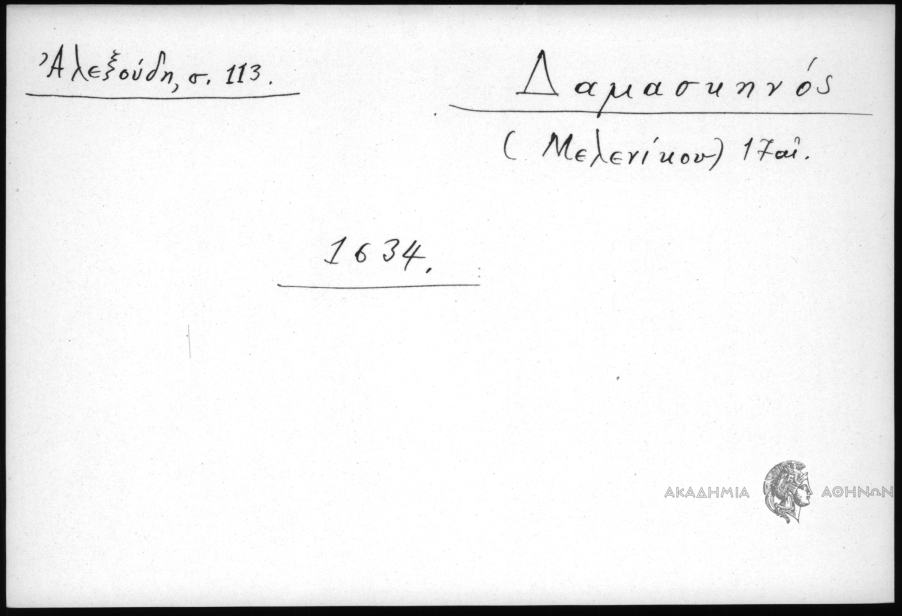 Ἀλεξούδη, σ. 113.
Δαμασκηνός
(Μελενίκου) 17 αἰ.
1634.
ΑΚΑΔΗΜΙΑ ΑΘΗΝΩΝ